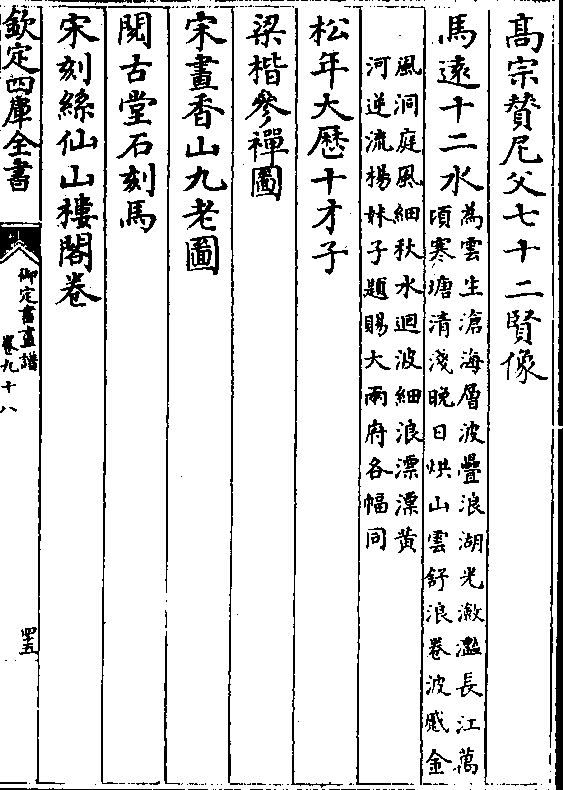 髙宗賛尼父七十二賢像
馬遠十二水
為雲生滄海層波疊浪湖光瀲灧長江萬
頃寒塘清淺晚日烘山雲舒浪卷波蹙金
風洞庭風細秋水迴波細浪漂漂黄
河逆流楊妹子題賜大兩府各幅同
松年大厯十才子
梁楷參禪圖
宋畫香山九老圖
閱古堂石刻馬
宋刻絲仙山樓閣卷
欽定四庫全書
御定書畫譜
卷九十八
四五